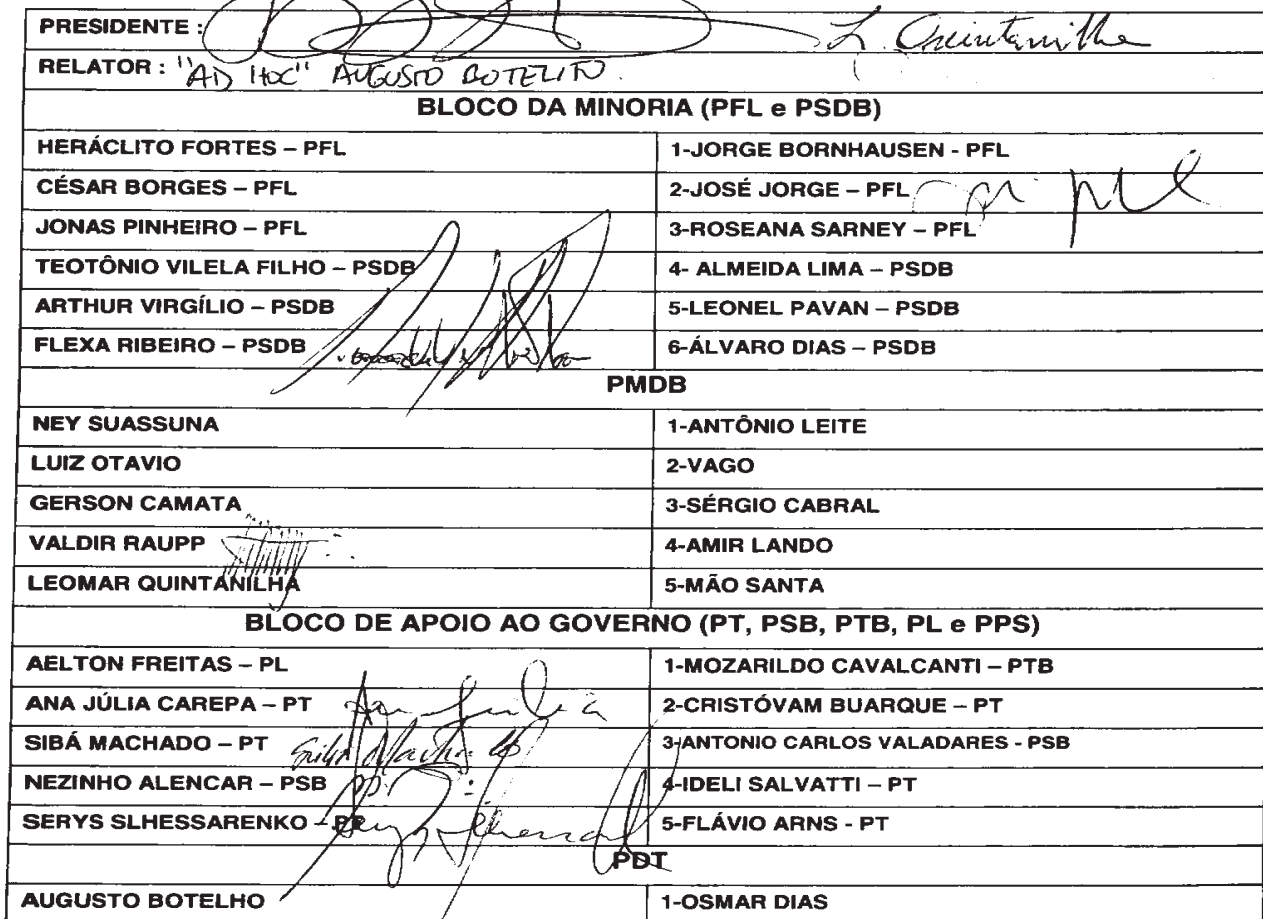 PRESIDENTE : L. Quintanilha
RELATOR : "AD HOC" AUGUSTO BOTELHO.
BLOCO DA MINORIA (PFL e PSDB)
HERÁCLITO FORTES – PFL 1-JORGE BORNHAUSEN - PFL
CÉSAR BORGES – PFL 2-JOSÉ JORGE – PFL
JONAS PINHEIRO – PFL 3-ROSEANA SARNEY – PFL
TEOTÔNIO VILELA FILHO – PSDB 4- ALMEIDA LIMA – PSDB
ARTHUR VIRGÍLIO – PSDB 5-LEONEL PAVAN – PSDB
FLEXA RIBEIRO – PSDB 6-ÁLVARO DIAS – PSDB
PMDB
NEY SUASSUNA 1-ANTÔNIO LEITE
LUIZ OTAVIO 2-VAGO
GERSON CAMATA 3-SÉRGIO CABRAL
VALDIR RAUPP 4-AMIR LANDO
LEOMAR QUINTANILHA 5-MÃO SANTA
BLOCO DE APOIO AO GOVERNO (PT, PSB, PTB, PL e PPS)
AELTON FREITAS – PL 1-MOZARILDO CAVALCANTI – PTB
ANA JÚLIA CAREPA – PT Ana Júlia 2-CRISTÓVAM BUARQUE – PT
SIBÁ MACHADO – PT Sibá Machado 3-ANTONIO CARLOS VALADARES - PSB
NEZINHO ALENCAR – PSB 4-IDELI SALVATTI – PT
SERYS SLHESSARENKO – PT Serys 5-FLÁVIO ARNS - PT
PDT
AUGUSTO BOTELHO 1-OSMAR DIAS